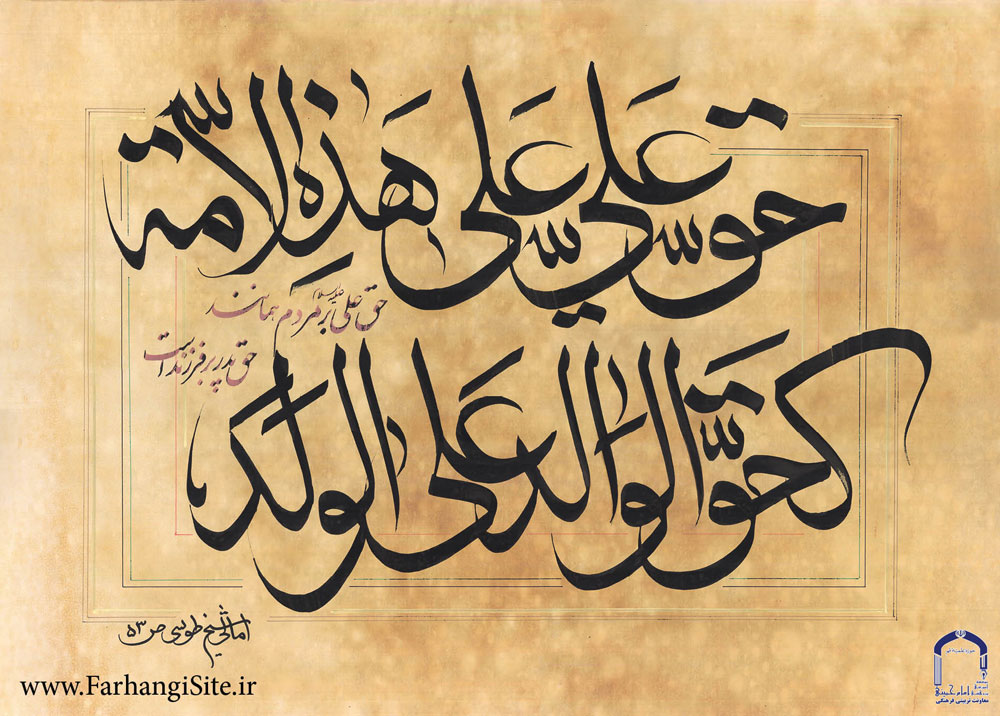 حق علي علی هذه الامة
كحق الوالد علی الولد
حق علی علیه‌السلام بر مردم همانند
حق پدر بر فرزند است
امالی شیخ طوسی ص ۵۳
www.FarhangiSite.ir
معاونت تربیتی فرهنگی